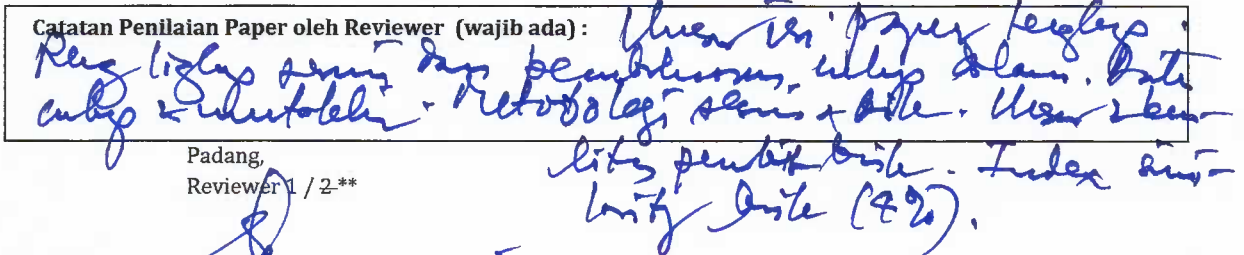 Catatan Penilaian Paper oleh Reviewer (wajib ada) : Unsur isi paper lengkap.
Ruang lingkup sesuai dan pembahasan cukup dalam. Data
cukup & mutakhir. Metodologi sesuai & baik. Unsur & kua-
litas penerbit baik. Index simi-
larity baik (4%).
Padang,
Reviewer 1 / 2 **